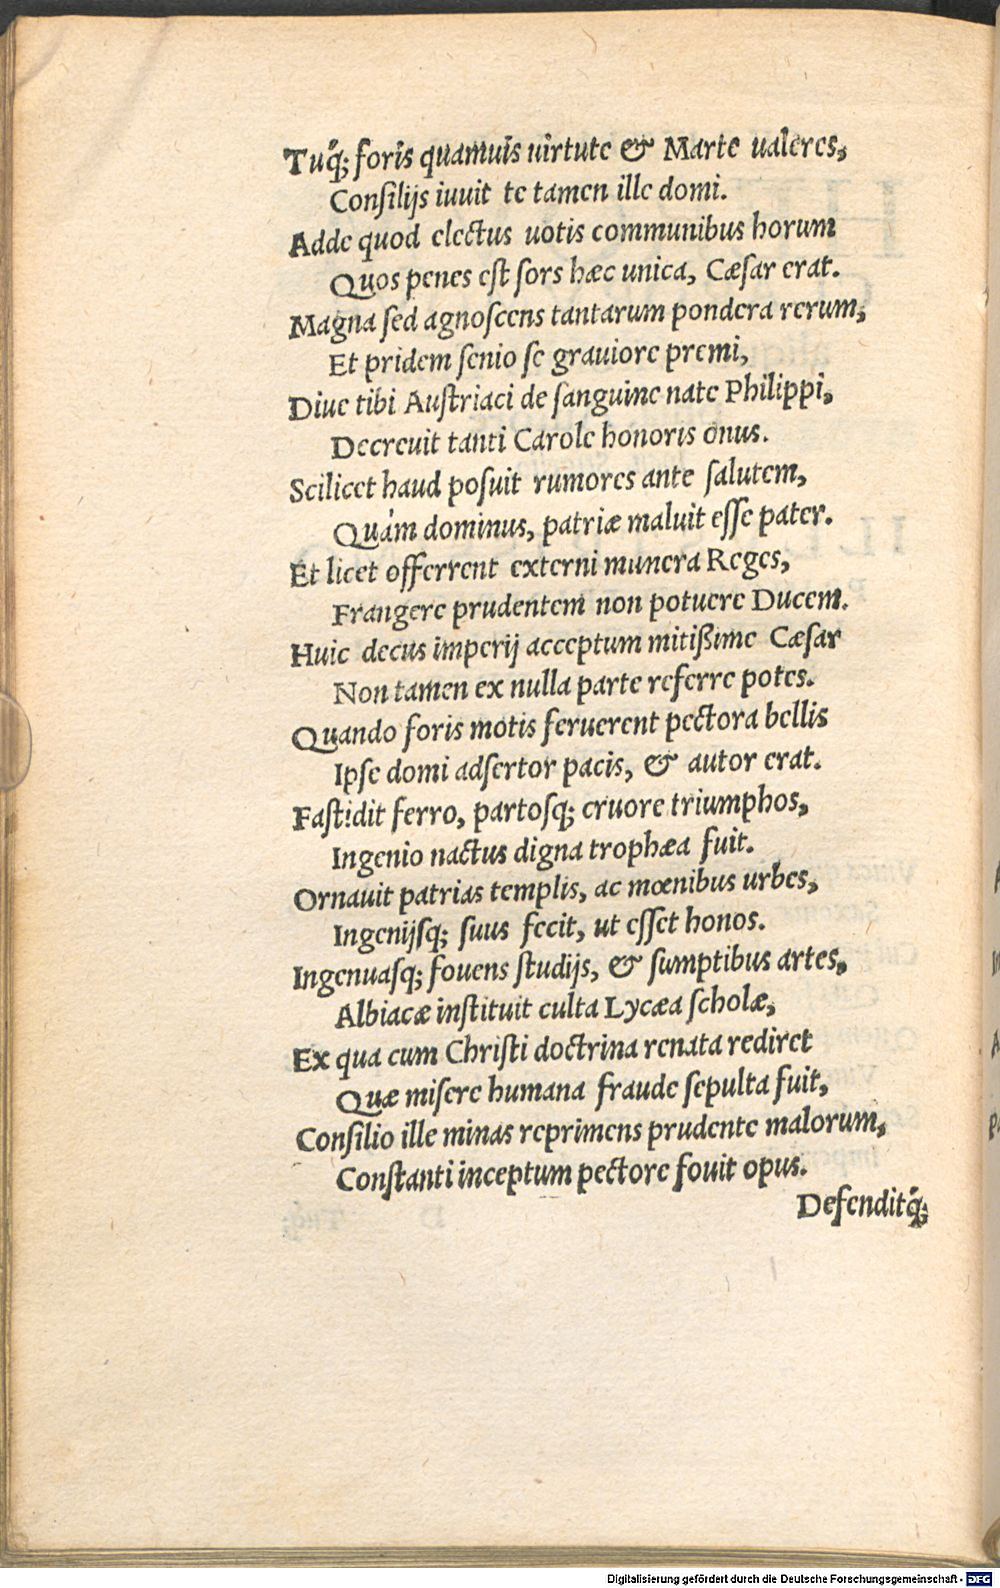 Tuq́; foris quamuis uirtute & Marte ualeres,
Conſilijs iuuit te tamen ille domi.
Adde quod electus uotis communibus horum
Quos penes eſt ſors hæc unica, Cæſar erat.
Magna ſed agnoſcens tantarum pondera rerum,
Et pridem ſenio ſe grauiore premi,
Diue tibi Auſtriaci de ſanguine nate Philippi,
Decreuit tanti Carole honoris onus.
Scilicet haud poſuit rumores ante ſalutem,
Quàm dominus, patriæ maluit eſſe pater.
Et licet offerrent externi munera Reges,
Frangere prudentem non potuere Ducem.
Huic decus imperij acceptum mitißime Cæſar
Non tamen ex nulla parte referre potes.
Quando foris motis feruerent pectora bellis
Ipſe domi adſertor pacis, & autor erat.
Faſtidit ferro, partosq; cruore triumphos,
Ingenio nactus digna trophæa fuit.
Ornauit patrias templis, ac mœnibus urbes,
Ingenijſq; ſuus fecit, ut eſſet honos.
Ingenuaſq; fouens ſtudijs, & ſumptibus artes,
Albiacæ inſtituit culta Lycæa ſcholæ,
Ex qua cum Chriſti doctrina renata rediret
Quæ miſere humana fraude ſepulta fuit,
Conſilio ille minas reprimens prudente malorum,
Conſtanti inceptum pectore fouit opus.
Defenditq́;
Digitalisierung gefördert durch die Deutsche Forschungsgemeinschaft - DFG